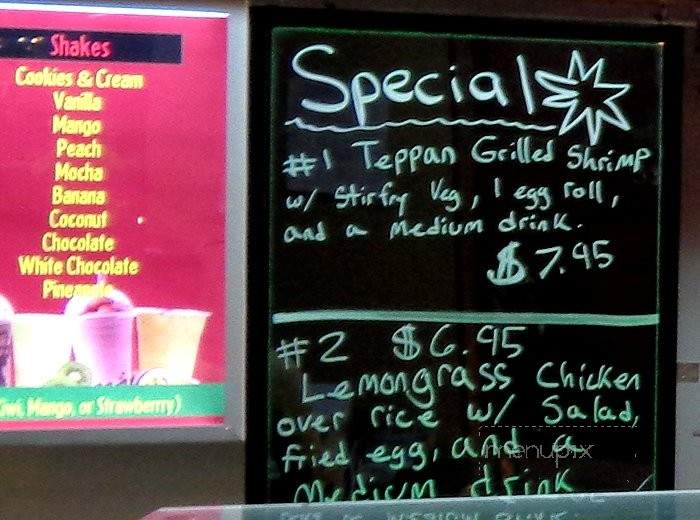 Shakes
Cookies & Cream
Vanilla
Mango
Peach
Mocha
Banana
Coconut
Chocolate
White Chocolate
Pineapple
Mango, or Strawberrry)
Special
#1 Teppan Grilled Shrimp
w/ Stirfry Veg, 1 egg roll,
and a Medium drink.
$7.95
#2 $6.95
Lemongrass Chicken
over rice w/ Salad,
fried egg, and a
Medium drink
menupix